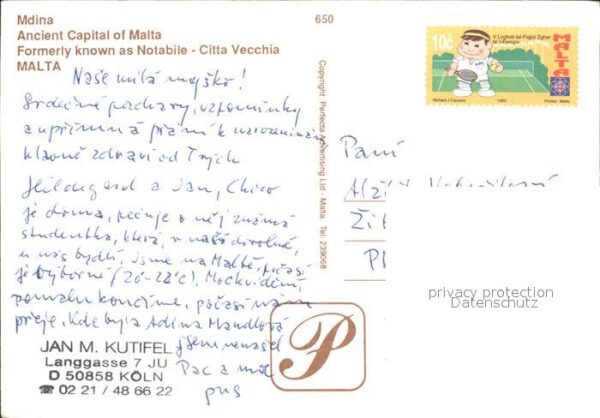 Mdina
Ancient Capital of Malta
Formerly known as Notabile - Citta Vecchia
MALTA
650
10c
V Logħob tal-Pajjiżi Żgħar
ta' l-Ewropa
MALTA
Richard J Caruana 1993 Printex - Malta
Copyright: Perfecta Advertising Ltd - Malta. Tel: 239068
Naše milá
Srdečné pozdravy, vzpomínky
a upřímná přání k
hlavně zdraví od Tvých
Hildegard a Jan, Chico
je doma, pečuje o něj známá
studentka, která, v naší dovolné,
u nás bydlí, jsme na Maltě, počasí
je výborné (20-22°C). Moc vidíme,
pomalu končíme, počasí nám
přeje. Kde byla Adina Mandlová
jsem nenašel
Pac a
pus
Paní
Ži
privacy protection
Datenschutz
P
JAN M. KUTIFEL
Langgasse 7 JU
D 50858 KÖLN
☎ 02 21 / 48 66 22